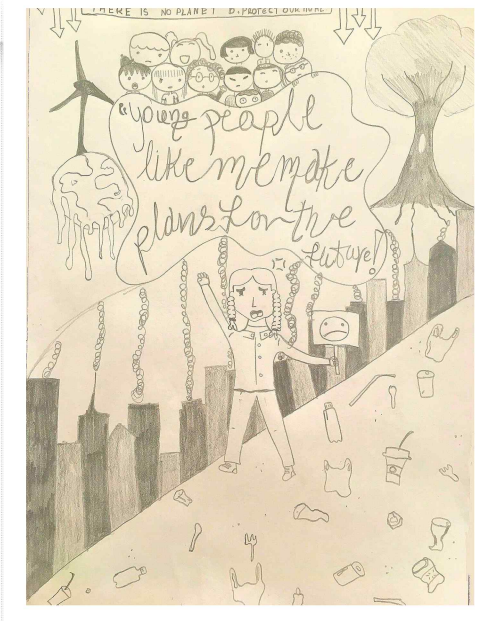 THERE IS NO PLANET B. PROTECT OUR HOME
"young people
like me make
plans for the
future!